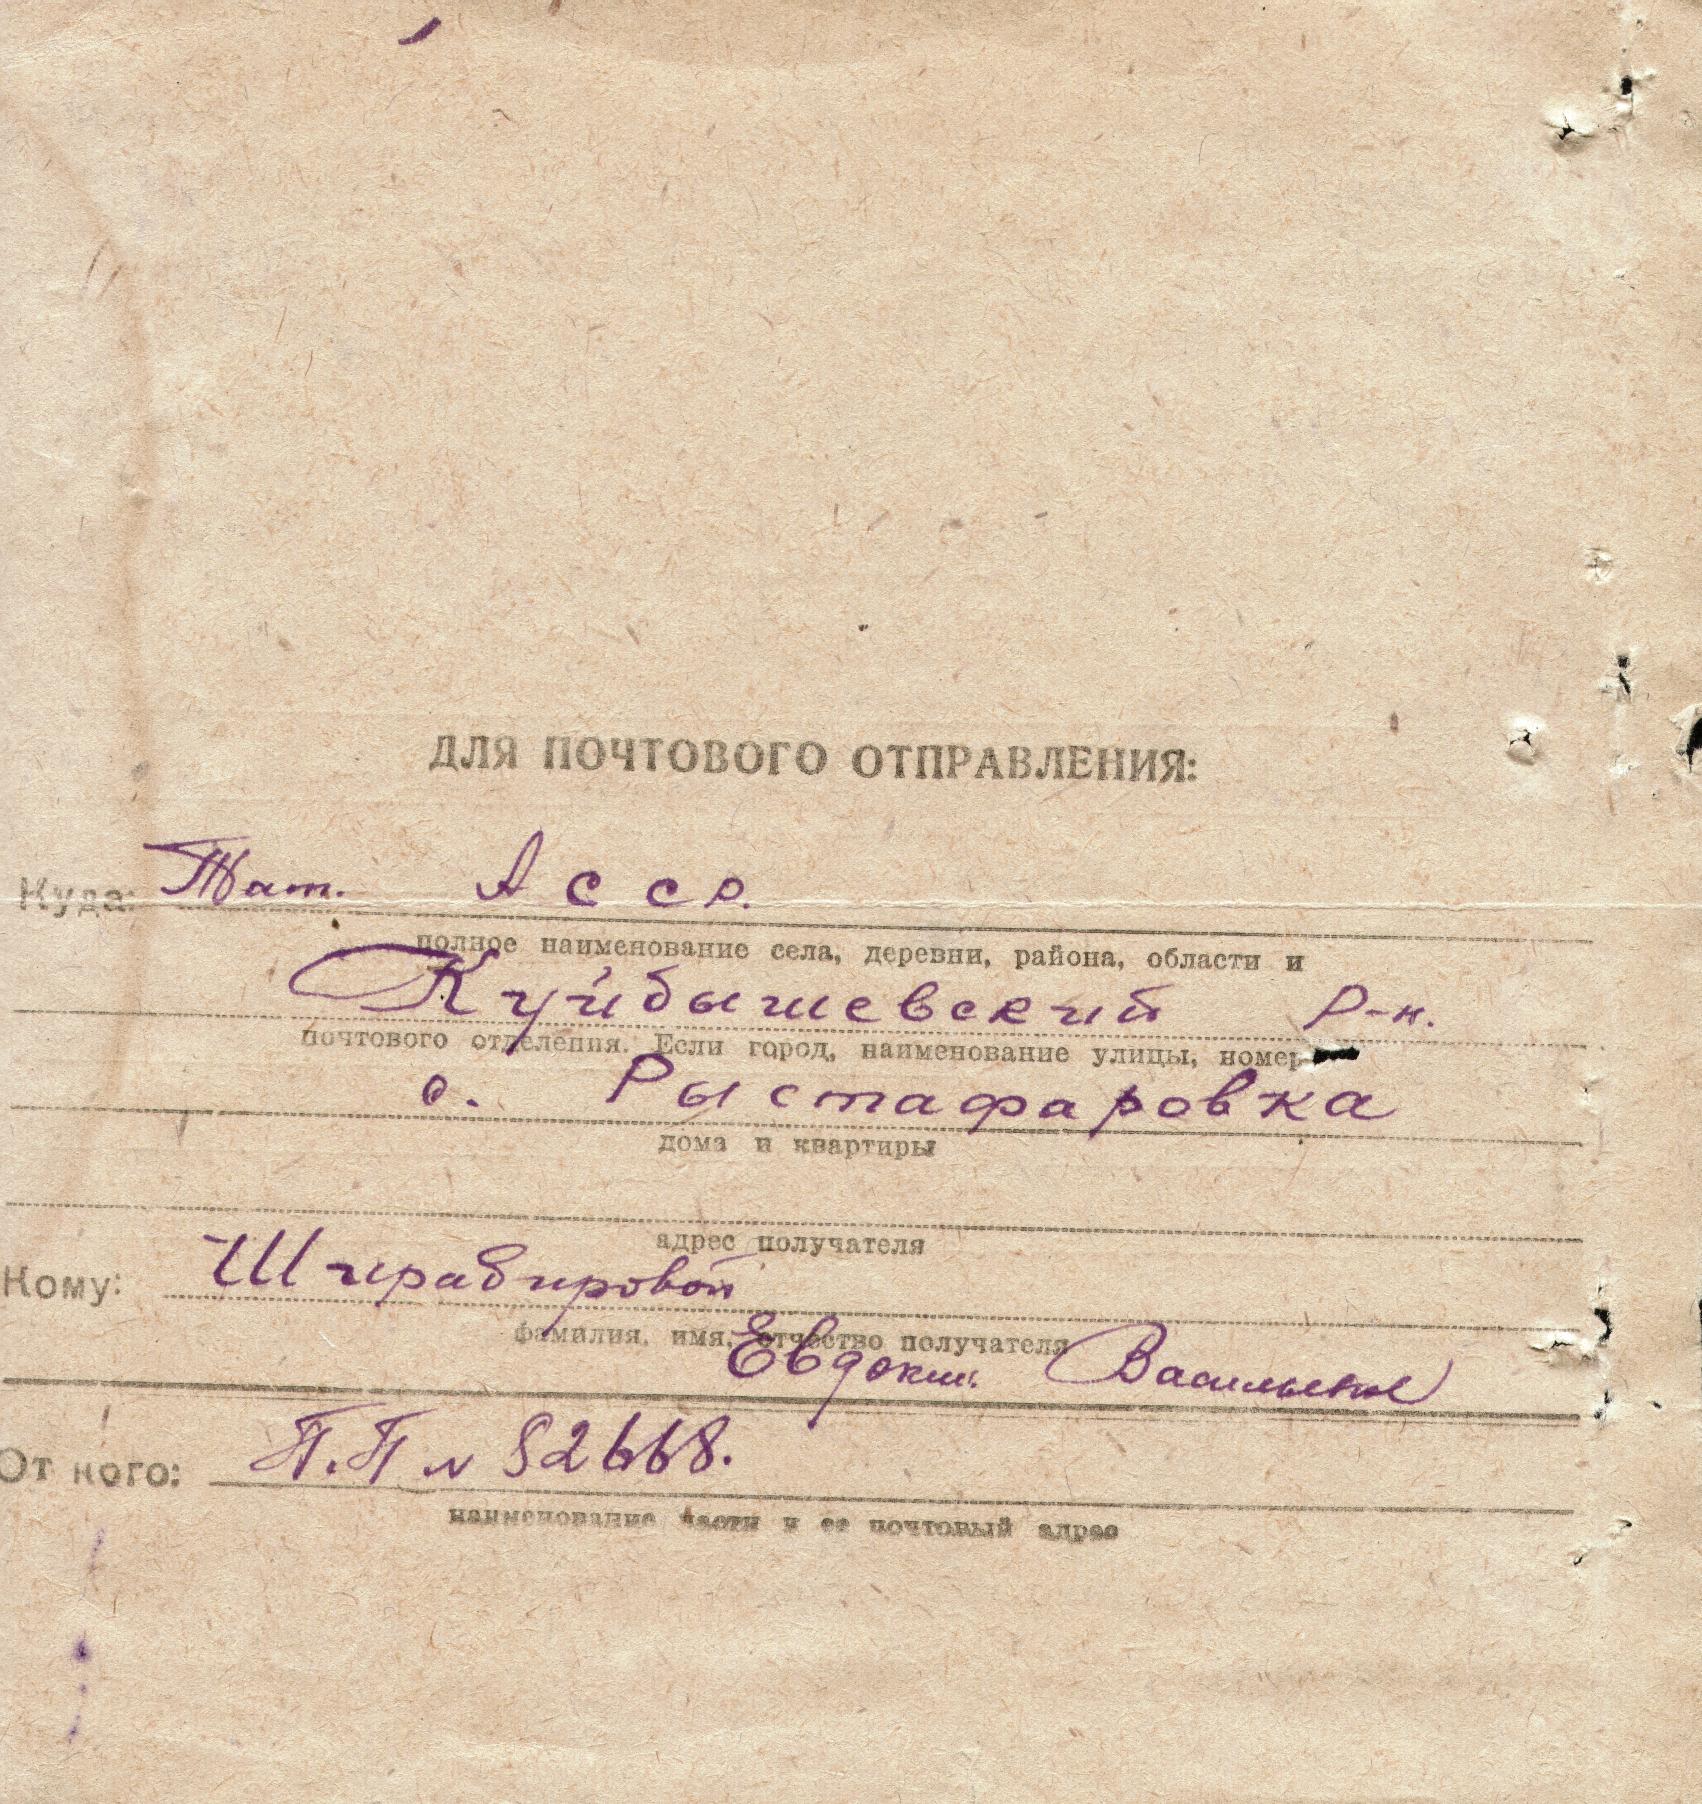 ДЛЯ ПОЧТОВОГО ОТПРАВЛЕНИЯ:
Куда: Тат. АССР.
полное наименование села, деревни, района, области и
Куйбышевский р-н.
почтового отделения. Если город, наименование улицы, номер
с. Рыстафаровка
дома и квартиры
адрес получателя
Кому: Ширабировой
фамилия, имя, отчество получателя
Евдоки. Васильевне
От кого: П.П № 82668.
наименование части и ее почтовый адрес